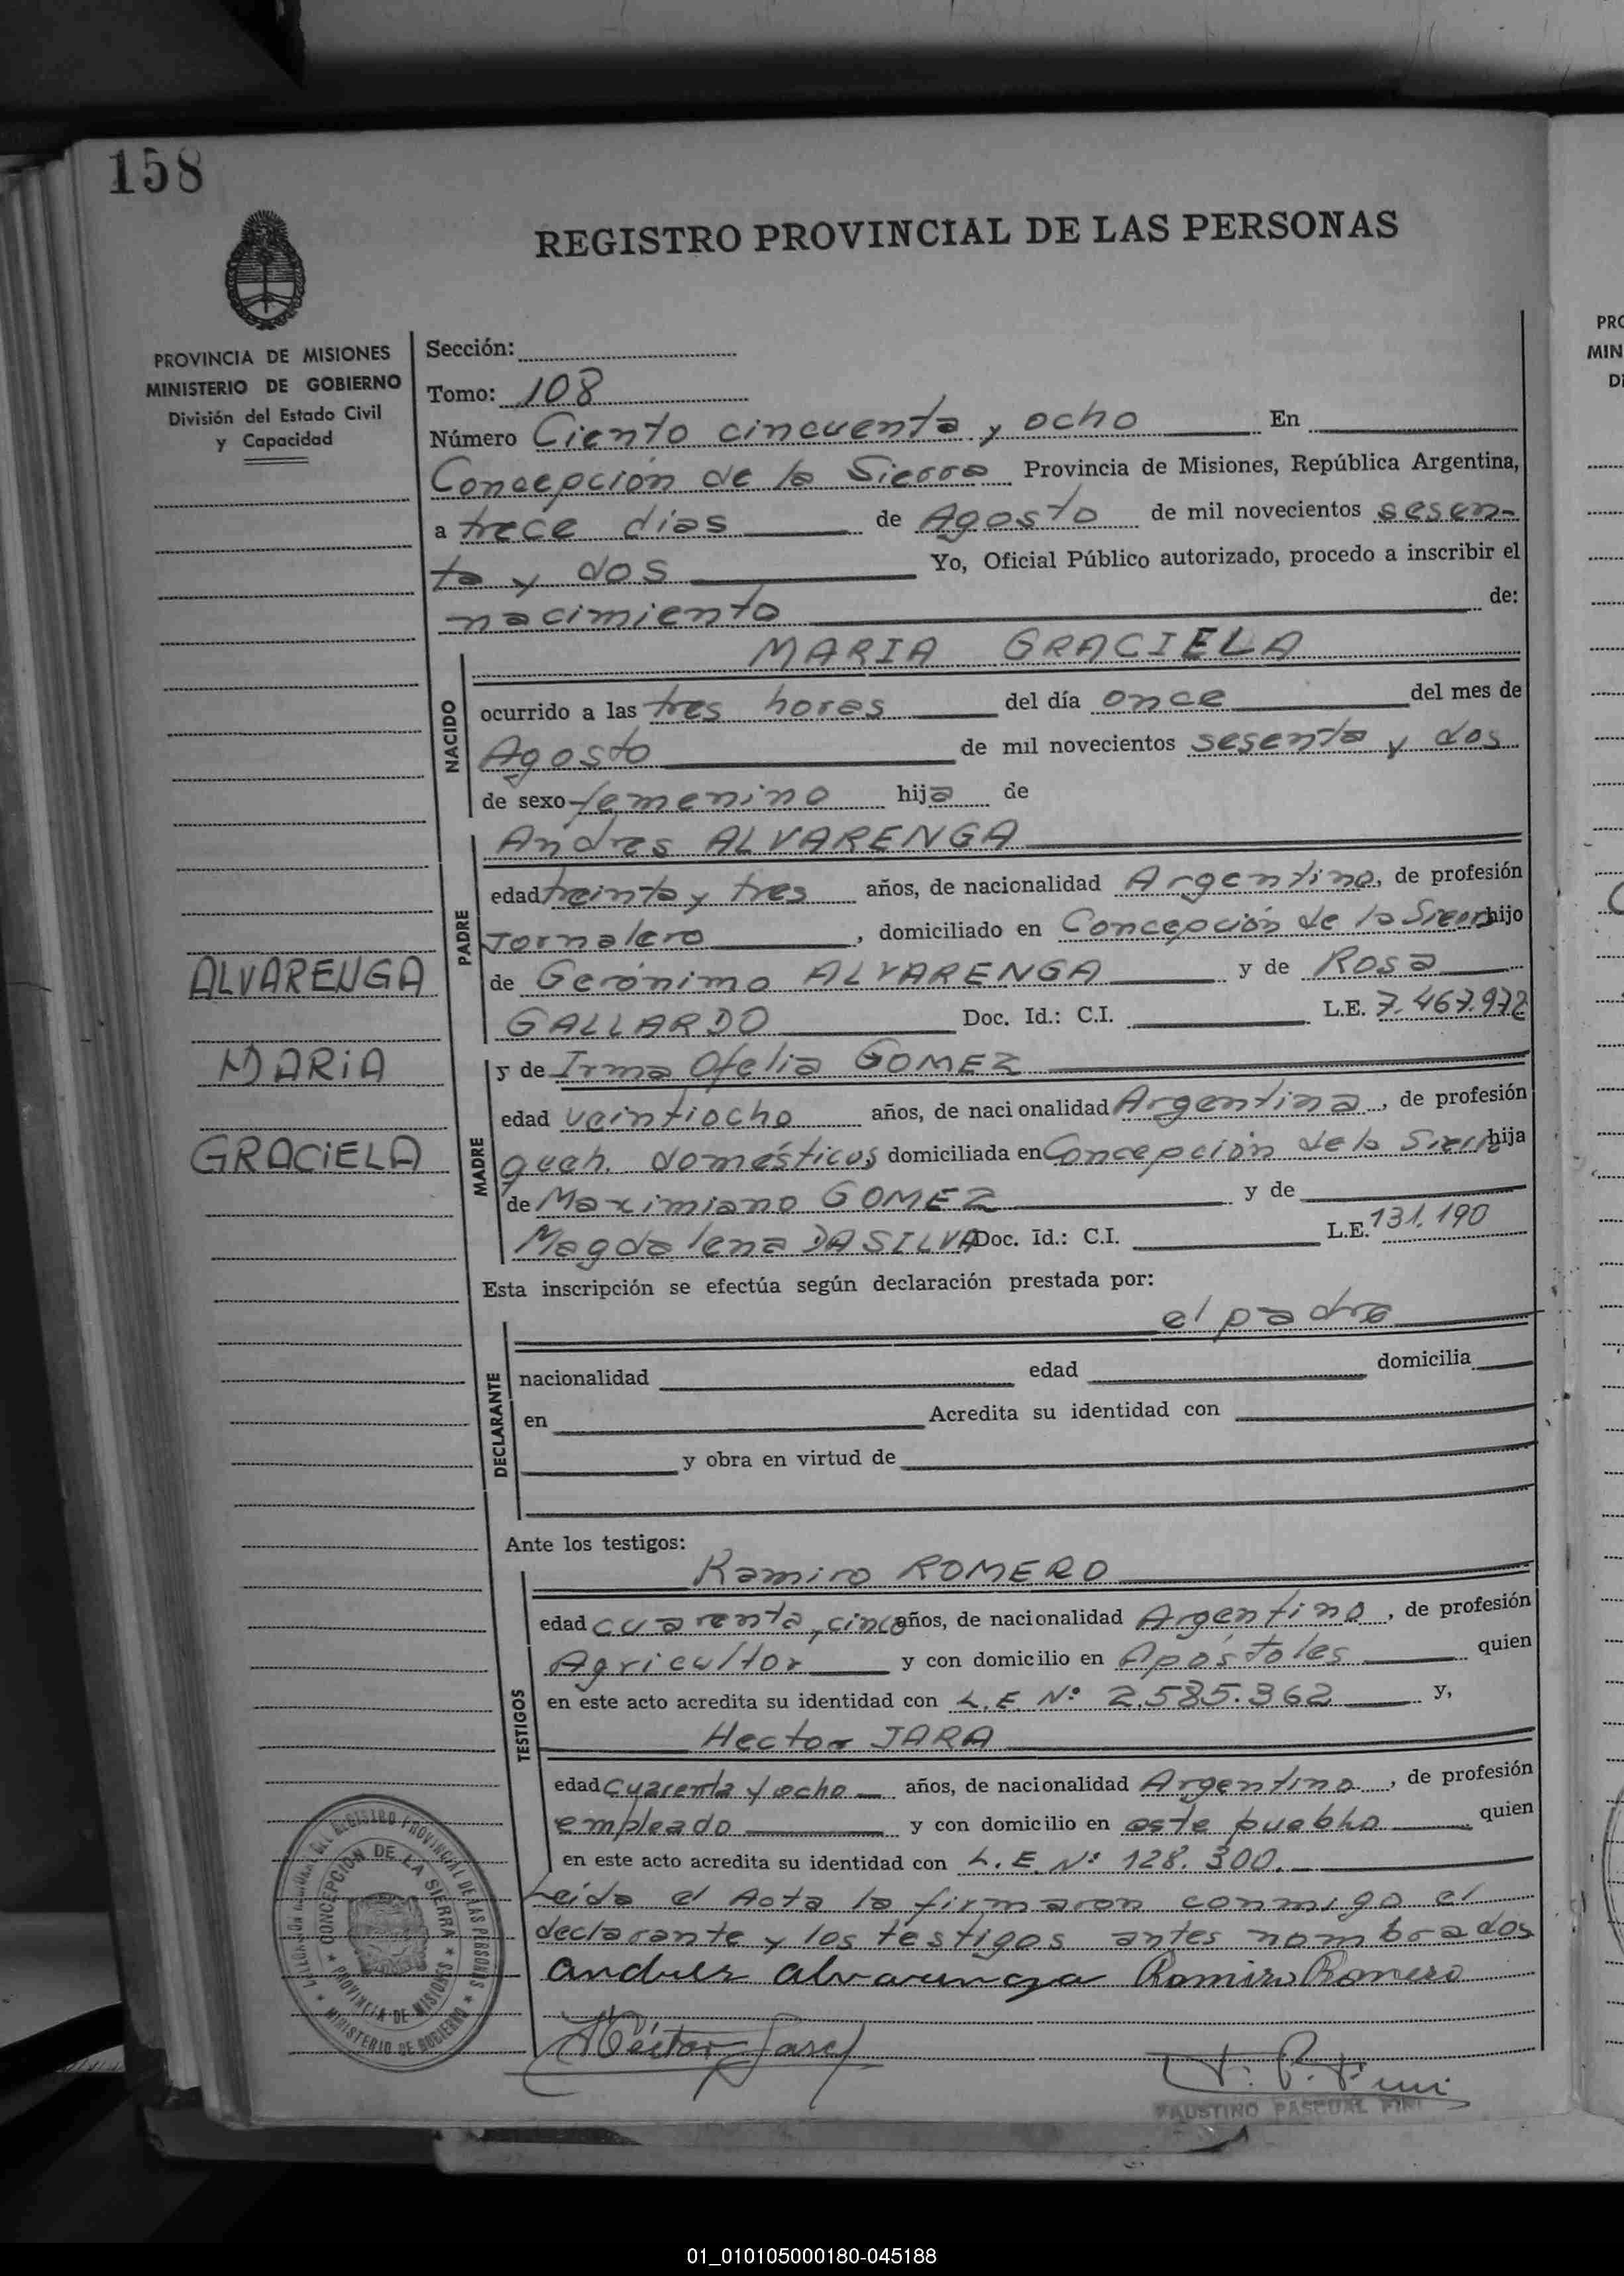 158
REGISTRO PROVINCIAL DE LAS PERSONAS
PROVINCIA DE MISIONES
MINISTERIO DE GOBIERNO
División del Estado Civil
y Capacidad
Sección:
Tomo: 108
Número Ciento cincuenta y ocho En
Concepción de la Sierra Provincia de Misiones, República Argentina,
a trece dias de Agosto de mil novecientos sesen-
ta y dos Yo, Oficial Público autorizado, procedo a inscribir el
nacimiento de:
MARIA GRACIELA
NACIDO
ocurrido a las tres horas del día once del mes de
Agosto de mil novecientos sesenta y dos
de sexo femenino hija de
Andres ALVARENGA
PADRE
edad treinta y tres años, de nacionalidad Argentino, de profesión
Jornalero, domiciliado en Concepción de la Sierra hijo
de Gerónimo ALVARENGA y de Rosa
GALLARDO Doc. Id.: C.I. L.E. 7.467.972
ALVARENGA
MARIA
GRACIELA
y de Irma Ofelia GOMEZ
MADRE
edad veintiocho años, de nacionalidad Argentina, de profesión
queh. domésticos domiciliada en Concepción de la Sierra hija
de Maximiano GOMEZ y de
Magdalena DA SILVA Doc. Id.: C.I. L.E. 131.190
Esta inscripción se efectúa según declaración prestada por:
el padre
DECLARANTE
nacionalidad edad domicilia
en Acredita su identidad con
y obra en virtud de
Ante los testigos:
Ramiro ROMERO
TESTIGOS
edad cuarenta y cinco años, de nacionalidad Argentino, de profesión
Agricultor y con domicilio en Apóstoles quien
en este acto acredita su identidad con L.E. Nº 2.585.362 y,
Hector JARA
edad cuarenta y ocho años, de nacionalidad Argentino, de profesión
empleado y con domicilio en este pueblo quien
en este acto acredita su identidad con L.E. Nº 128.300.
Leida el Acta la firmaron conmigo el
declarante y los testigos antes nombrados
andres alvarenga Ramiro Romero
Héctor Jara
F. P. Pini
FAUSTINO PASCUAL PINI
REGISTRO PROVINCIAL DE LAS PERSONAS
CONCEPCION DE LA SIERRA
PROVINCIA DE MISIONES
MINISTERIO DE GOBIERNO
PRO
MIN
Di
01_010105000180-045188